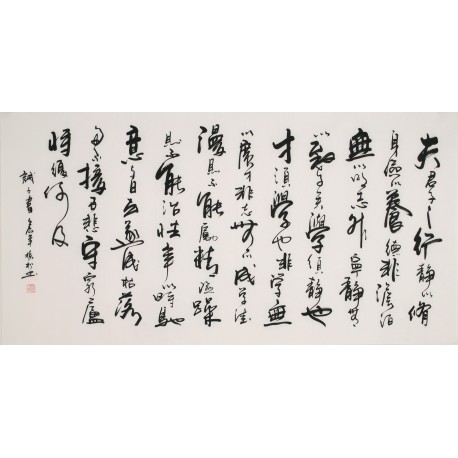 夫君子之行靜以脩
身儉以養德非澹泊
無以明志非寧靜無
以致遠夫學須靜也
才須學也非學無
以廣才非志無以成學淫
漫則不能勵精險躁
則不能治性年與時馳
意與日去遂成枯落
多不接世悲守窮廬
將復何及
誡子書